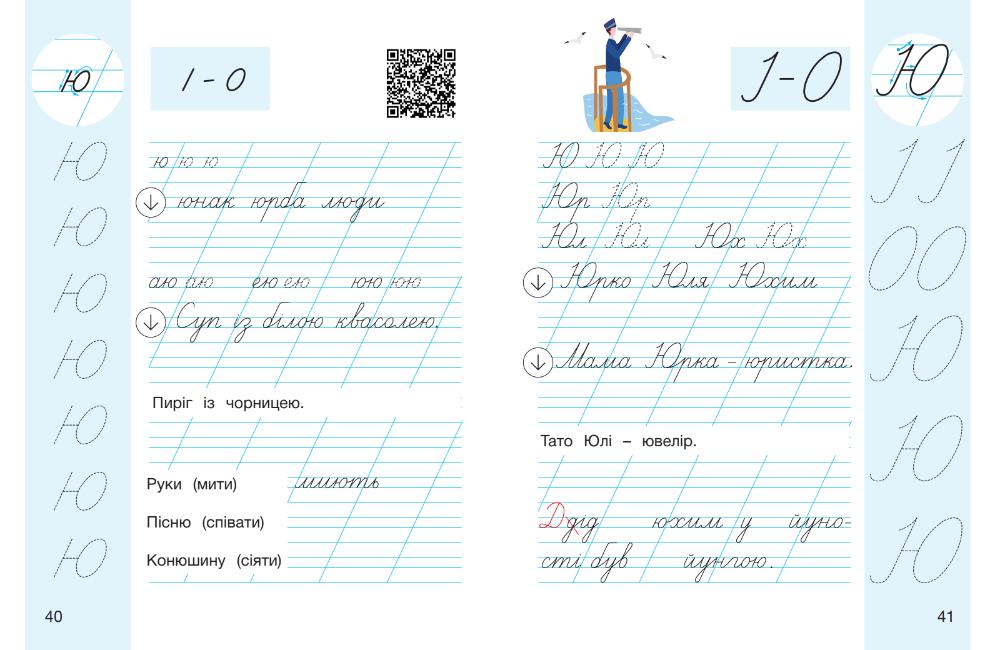 ю
І - О
ю ю ю
юнак юрба люди
аю аю ею ею юю юю
Суп із білою квасолею.
Пиріг із чорницею.
Руки (мити) миють
Пісню (співати)
Конюшину (сіяти)
Ю
Ю
Ю
Ю
Ю
Ю
Ю
40
І - О
Ю
Ю Ю Ю
Юр Юр
Юл Юл Юх Юх
Юрко Юля Юхим
Мама Юрка – юристка.
Тато Юлі – ювелір.
Ддід юхим у йуно-
сті був йунгою.
І І
О О
Ю
Ю
Ю
41